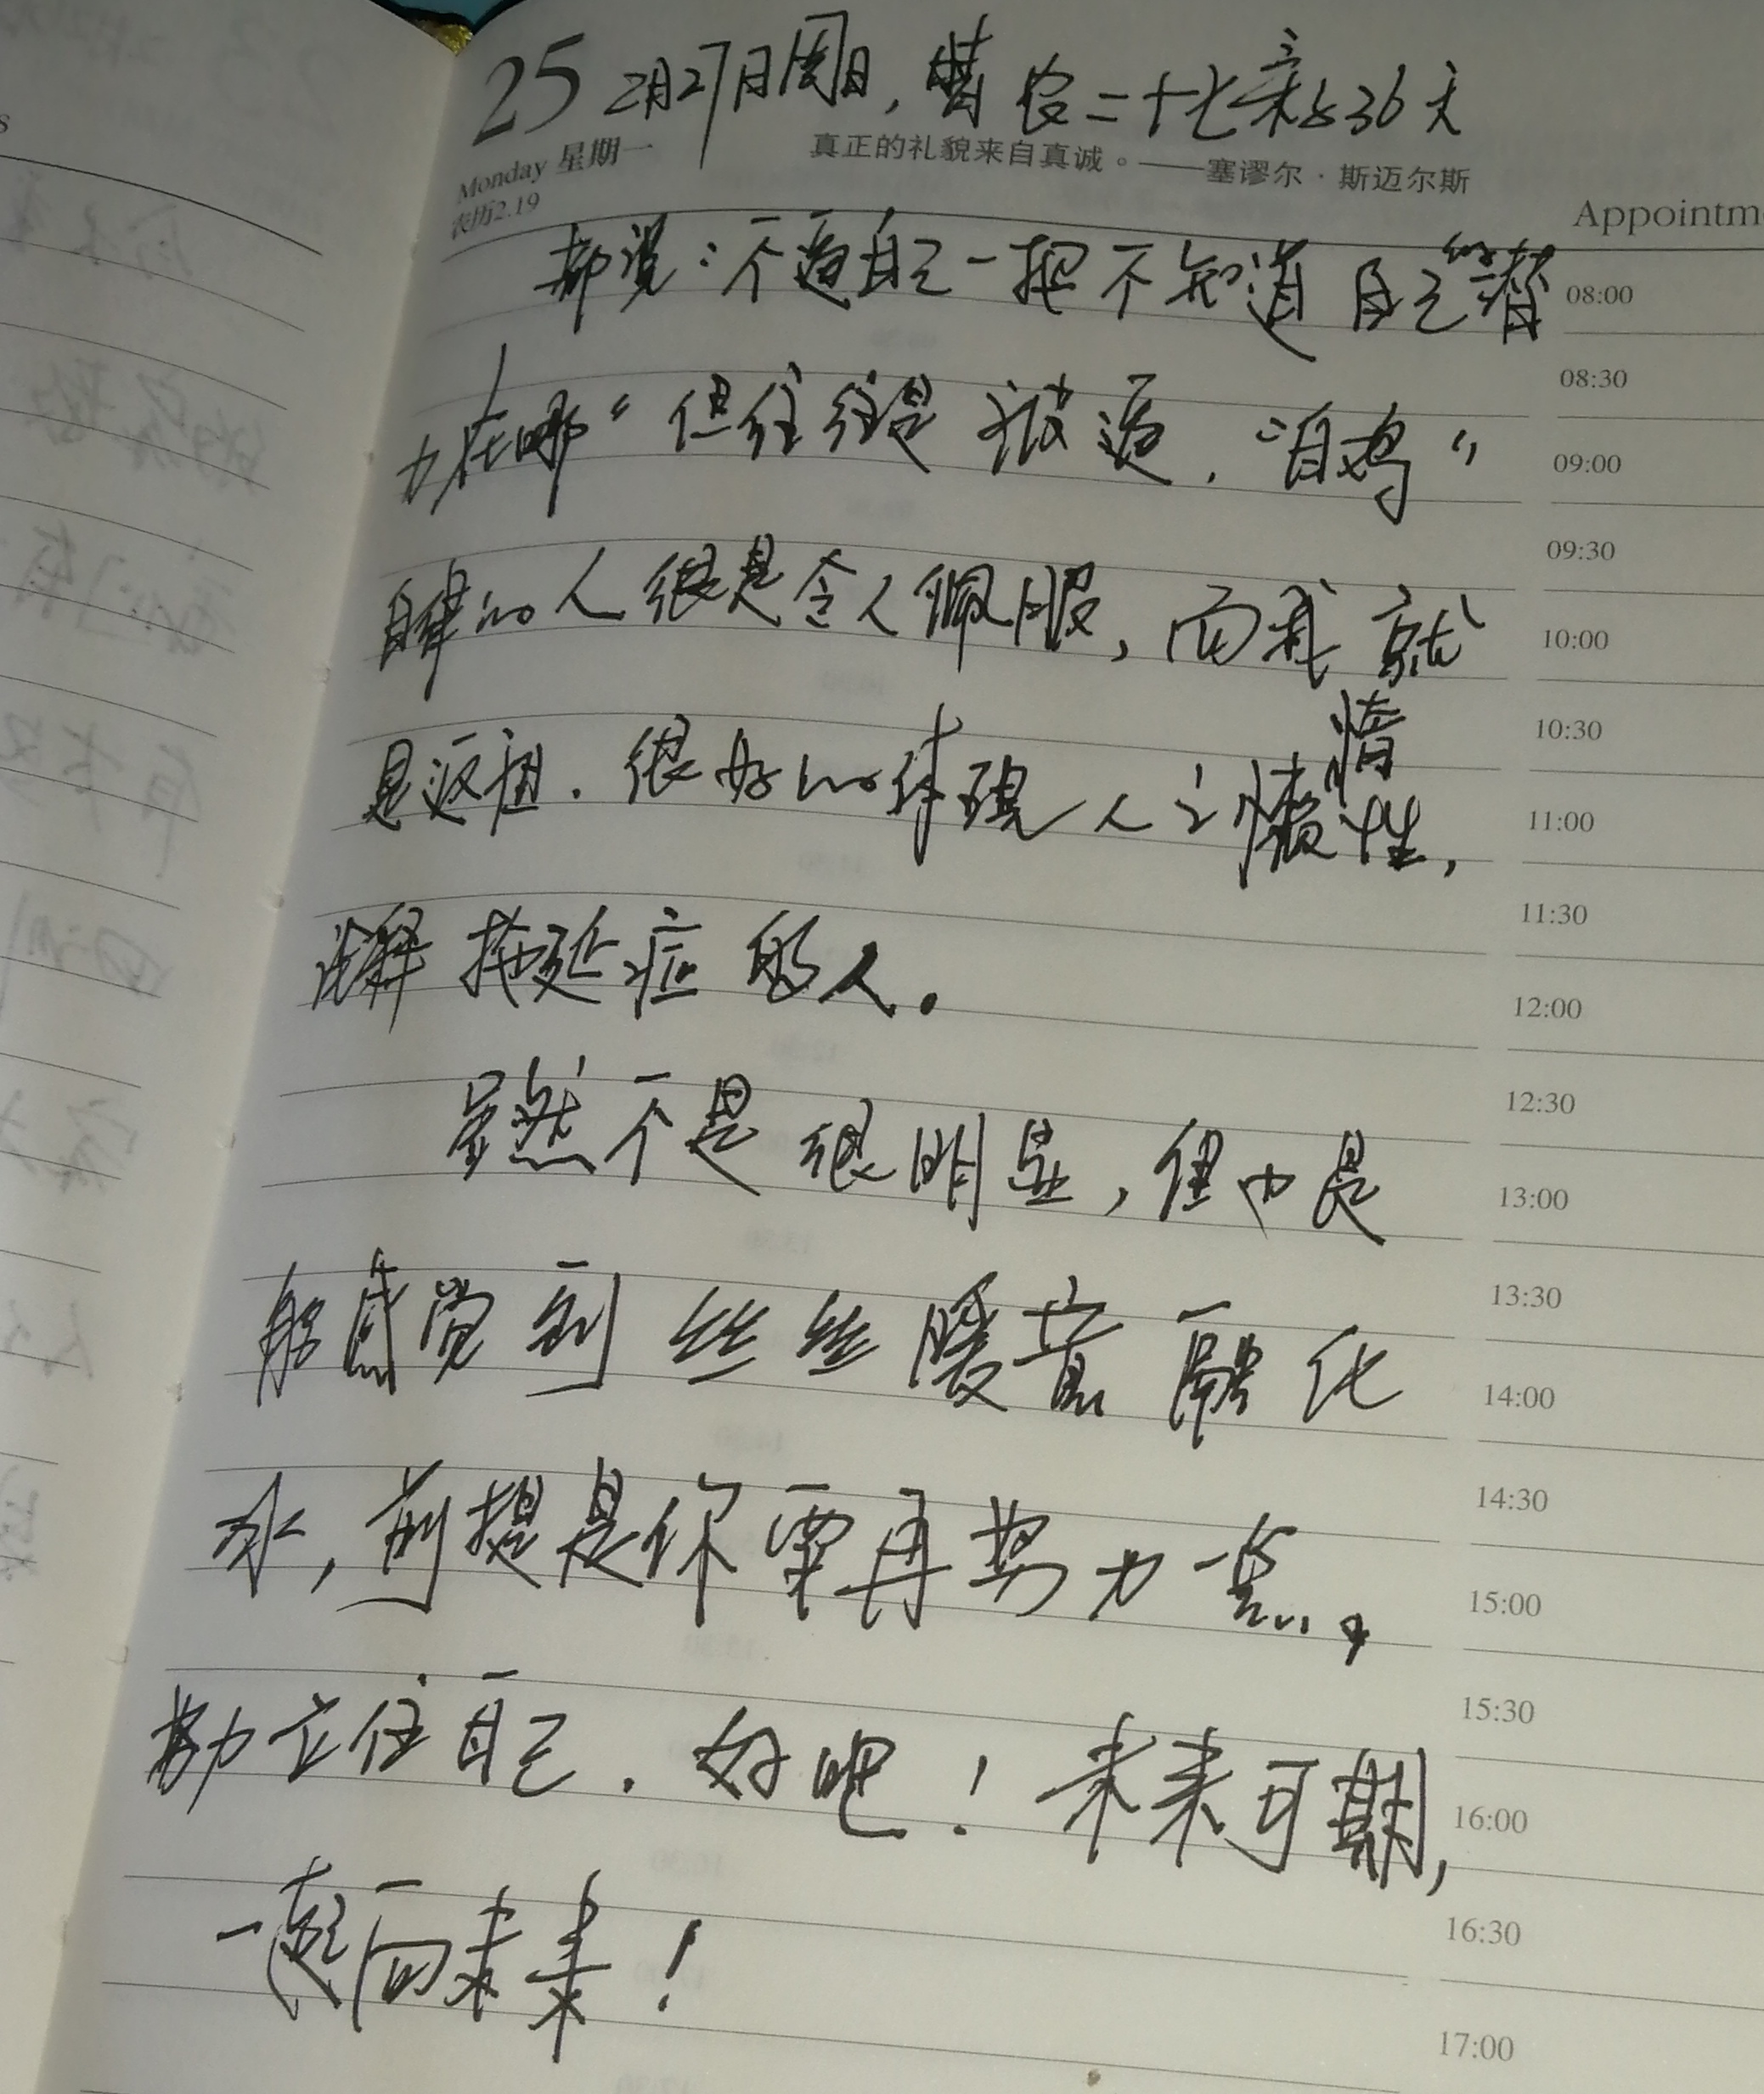 25 2月27日周日，农二十七亲36天
Monday 星期一 真正的礼貌来自真诚。——塞谬尔·斯迈尔斯
农历2.19
Appointm
都说：不逼自己一把不知道自己的潜
力在哪“但往往是被逼．“自鸡”
自律的人很是令人佩服，而我就
是返祖．很好的体现人之懒惰性，
拖延症的人。
虽然不是很明显，但也是
能感觉到丝丝暖意融化
冰，前提是你要再努力一点，
立住自己．好吧！未来可期，
一起向未来！
08:00
08:30
09:00
09:30
10:00
10:30
11:00
11:30
12:00
12:30
13:00
13:30
14:00
14:30
15:00
15:30
16:00
16:30
17:00